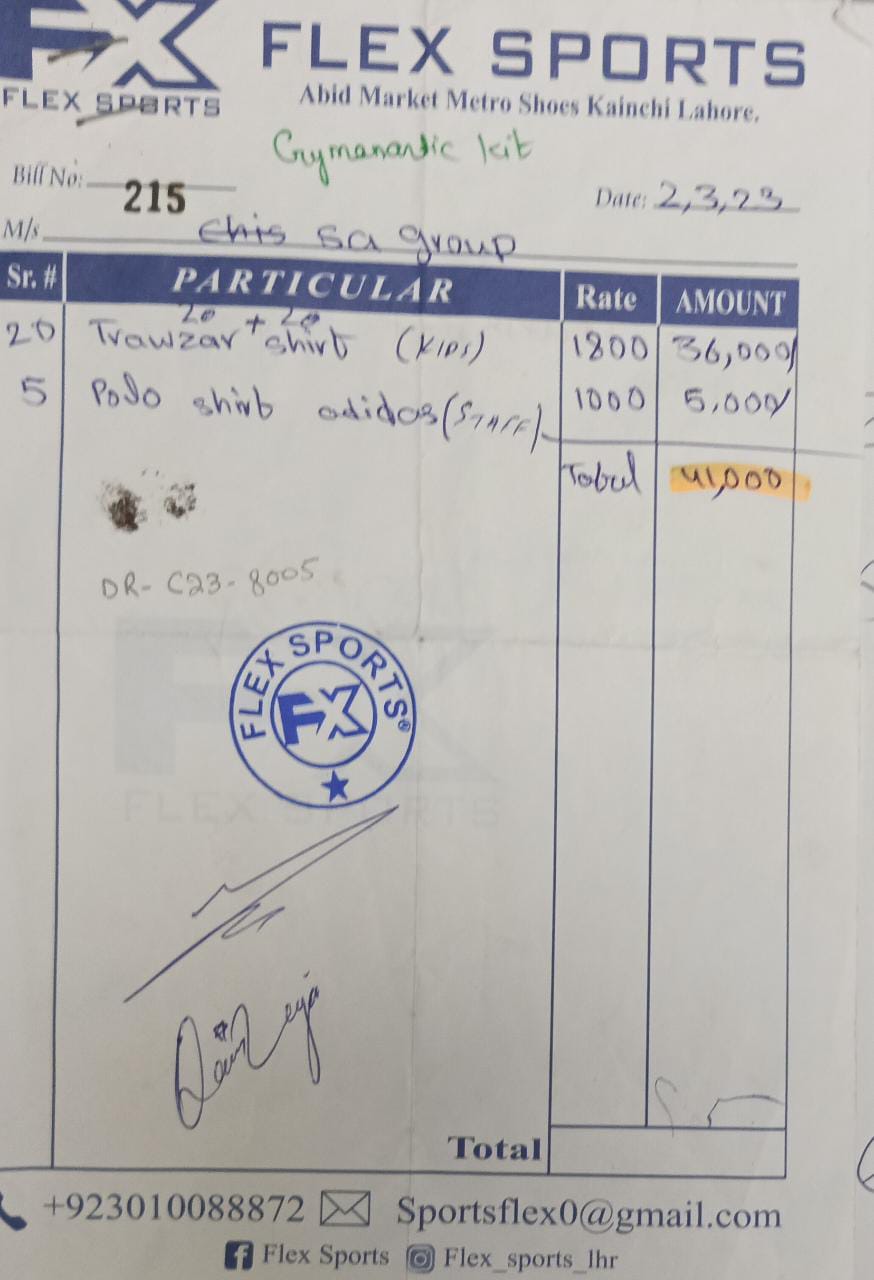 FX FLEX SPORTS
FLEX SPORTS
Abid Market Metro Shoes Kainchi Lahore.
Gymanastic kit
Bill No: 215
Date: 2,3,23
M/s Ehis sa group
Sr. # PARTICULAR Rate AMOUNT
20 + 20
20 Trawzar shirt (KIDS) 1800 36,000/
5 Polo shirt adidas (STAFF) 1000 5,000/
Total 41,000
DR- C23-8005
FLEX SPORTS®
FX
FX
FLEX SPORTS
Total
+923010088872 Sportsflex0@gmail.com
Flex Sports Flex_sports_lhr